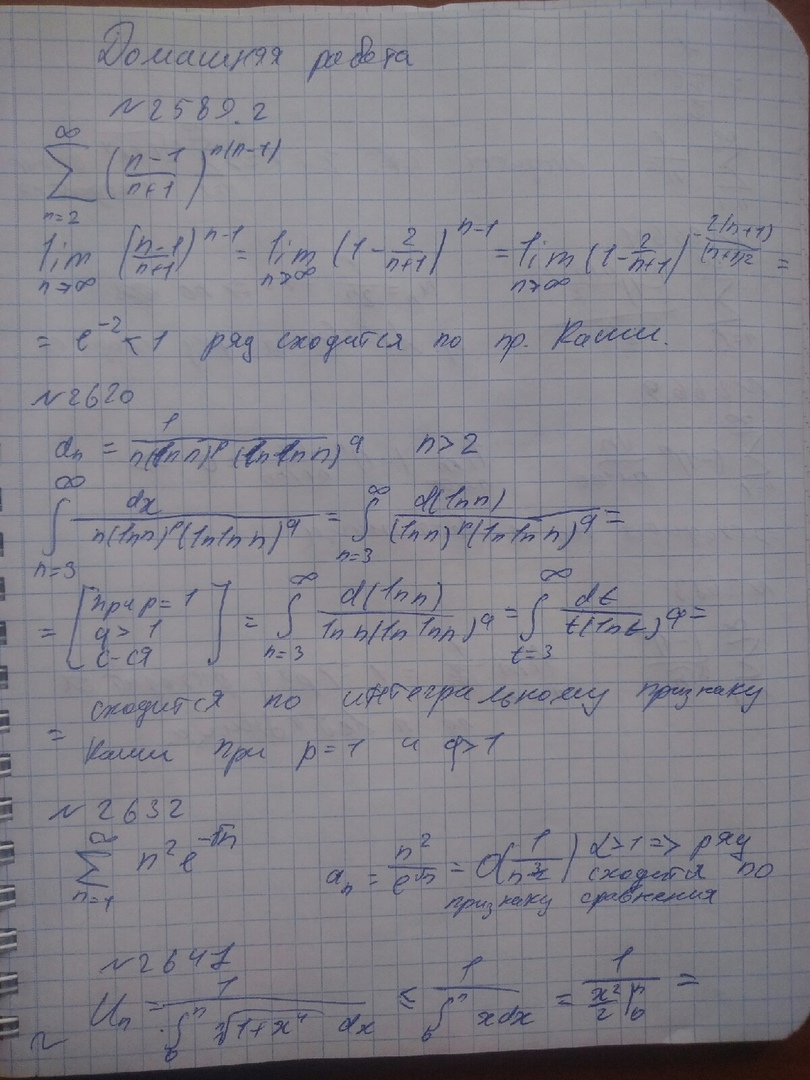 Домашняя работа
№2589.2
∑_{n=2}^{∞} ((n-1)/(n+1))^{n(n-1)}
lim_{n→∞} ((n-1)/(n+1))^{n-1} = lim_{n→∞} (1-2/(n+1))^{n-1} = lim_{n→∞} (1-2/(n+1))^{-2(n+1)/(n+1)2} =
= e^{-2} < 1 ряд сходится по пр. Коши.
№2620
a_n = 1/(n(ln n)^p (ln ln n)^q) n>2
∫_{n=3}^{∞} dx/(n(ln n)^p (ln ln n)^q) = ∫_{n=3}^{∞} d(ln n)/((ln n)^p (ln ln n)^q) =
= [при p=1 q>1 с-ся] = ∫_{n=3}^{∞} d(ln n)/(ln n(ln ln n)^q) = ∫_{t=3}^{∞} dt/(t(ln t)^q) =
= сходится по интегральному признаку
Коши при p=1 и q>1
№2632
∑_{n=1}^{∞} n^2 e^{-√n} a_n = n^2/e^{√n} = O(1/n^{α}) α>1 => ряд
сходится по
признаку сравнения
№2641
U_n = 1/(∫_0^n √(1+x^4) dx) ≤ 1/(∫_0^n x dx) = 1/(x^2/2 |_0^n) =